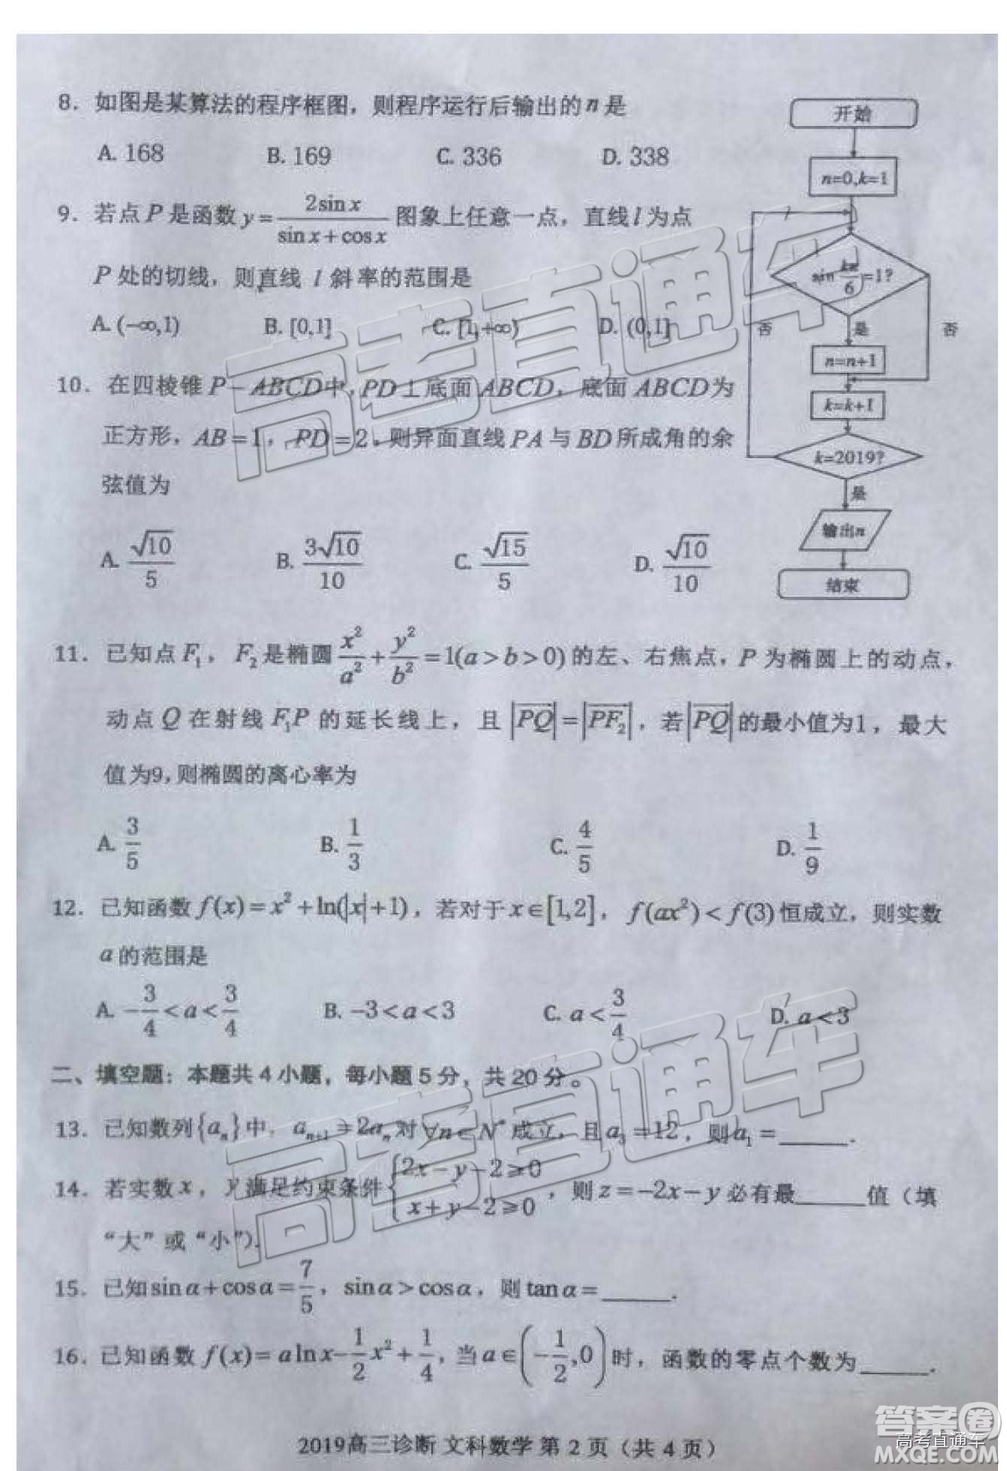 8. 如图是某算法的程序框图，则程序运行后输出的 n 是
A. 168 B. 169 C. 336 D. 338
9. 若点 P 是函数 y = 2sin x / (sin x + cos x) 图象上任意一点，直线 l 为点
P 处的切线，则直线 l 斜率的范围是
A. (-∞,1) B. [0,1] C. [1,+∞) D. (0,1]
10. 在四棱锥 P-ABCD 中，PD⊥底面 ABCD，底面 ABCD 为
正方形，AB=1，PD=2，则异面直线 PA 与 BD 所成角的余
弦值为
A. √10/5 B. 3√10/10 C. √15/5 D. √10/10
开始
n=0,k=1
sin kπ/6 =1?
否 是 否
n=n+1
k=k+1
k=2019?
是
输出n
结束
11. 已知点 F₁，F₂ 是椭圆 x²/a² + y²/b² = 1(a>b>0) 的左、右焦点，P 为椭圆上的动点，
动点 Q 在射线 F₁P 的延长线上，且 |PQ|=|PF₂|，若 |PQ| 的最小值为1，最大
值为9,则椭圆的离心率为
A. 3/5 B. 1/3 C. 4/5 D. 1/9
12. 已知函数 f(x)=x²+ln(|x|+1)，若对于 x∈[1,2]，f(ax²)<f(3) 恒成立，则实数
a 的范围是
A. -3/4<a<3/4 B. -3<a<3 C. a<3/4 D. a<3
二、填空题：本题共 4 小题，每小题 5 分，共 20 分。
13. 已知数列{aₙ}中，aₙ₊₁=2aₙ 对 ∀n∈N* 成立，且 a₃=12，则 a₁=_____.
14. 若实数 x，y 满足约束条件 {2x-y-2≥0 x+y-2≥0，则 z=-2x-y 必有最_____值（填
“大”或“小”）.
15. 已知 sin α+cos α=7/5，sin α>cos α，则 tan α=_____.
16. 已知函数 f(x)=a ln x-1/2 x²+1/4，当 a∈(-1/2,0) 时，函数的零点个数为_____.
2019高三诊断 文科数学 第 2 页（共 4 页）
高考直通车
高考直通车
答案卷
高考直通车
MXQE.COM